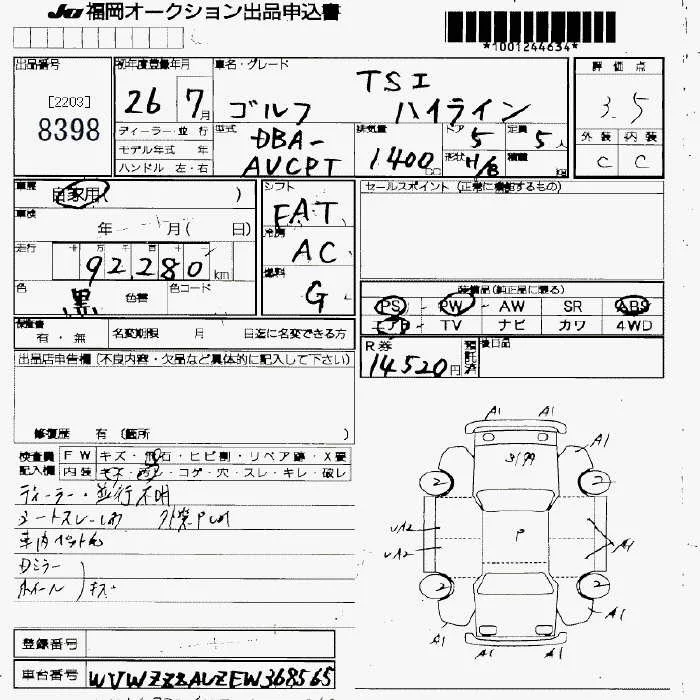 JU 福岡オークション出品申込書
*1001244634*
出品番号
[2203]
8398
初年度登録年月
26 7月
車名・グレード
TSI
ゴルフ ハイライン
評価点
3.5
外装 内装
C C
ディーラー・並行
モデル年式 年
ハンドル 左・右
型式
DBA-
AUCPT
排気量
1400 cc
ドア
5
形状 H/B
定員
5人
積載 kg
車歴
自家用( )
車検
年 月( 日)
走行
十 万 千 百 十
92,280 km
色
黒 色替
色コード
シフト
FAT
冷房
AC
燃料
G
セールスポイント (正常に機能するもの)
装備品(純正品に限る)
PS PW AW SR ABS
エアB TV ナビ カワ 4WD
R券
14,520円
預託済
後日品
検査書
有・無
名変期限 月 日迄に名変できる方
出品店申告欄(不良内容・欠品など具体的に記入して下さい)
修復歴 有 (箇所 )
検査員 FW キズ・飛石・ヒビ割・リペア跡・X要
記入欄 内装 キズ・汚れ・コゲ・穴・スレ・キレ・破レ
ディーラー・並行不明
車内ペット毛
Dミラー
ホイール キズ
A1 A1
A1
2 2
P
UA2
UA2
A1
2 2
A1 A1
A1 A1
登録番号
車台番号 WVWZZZAUZEW368565